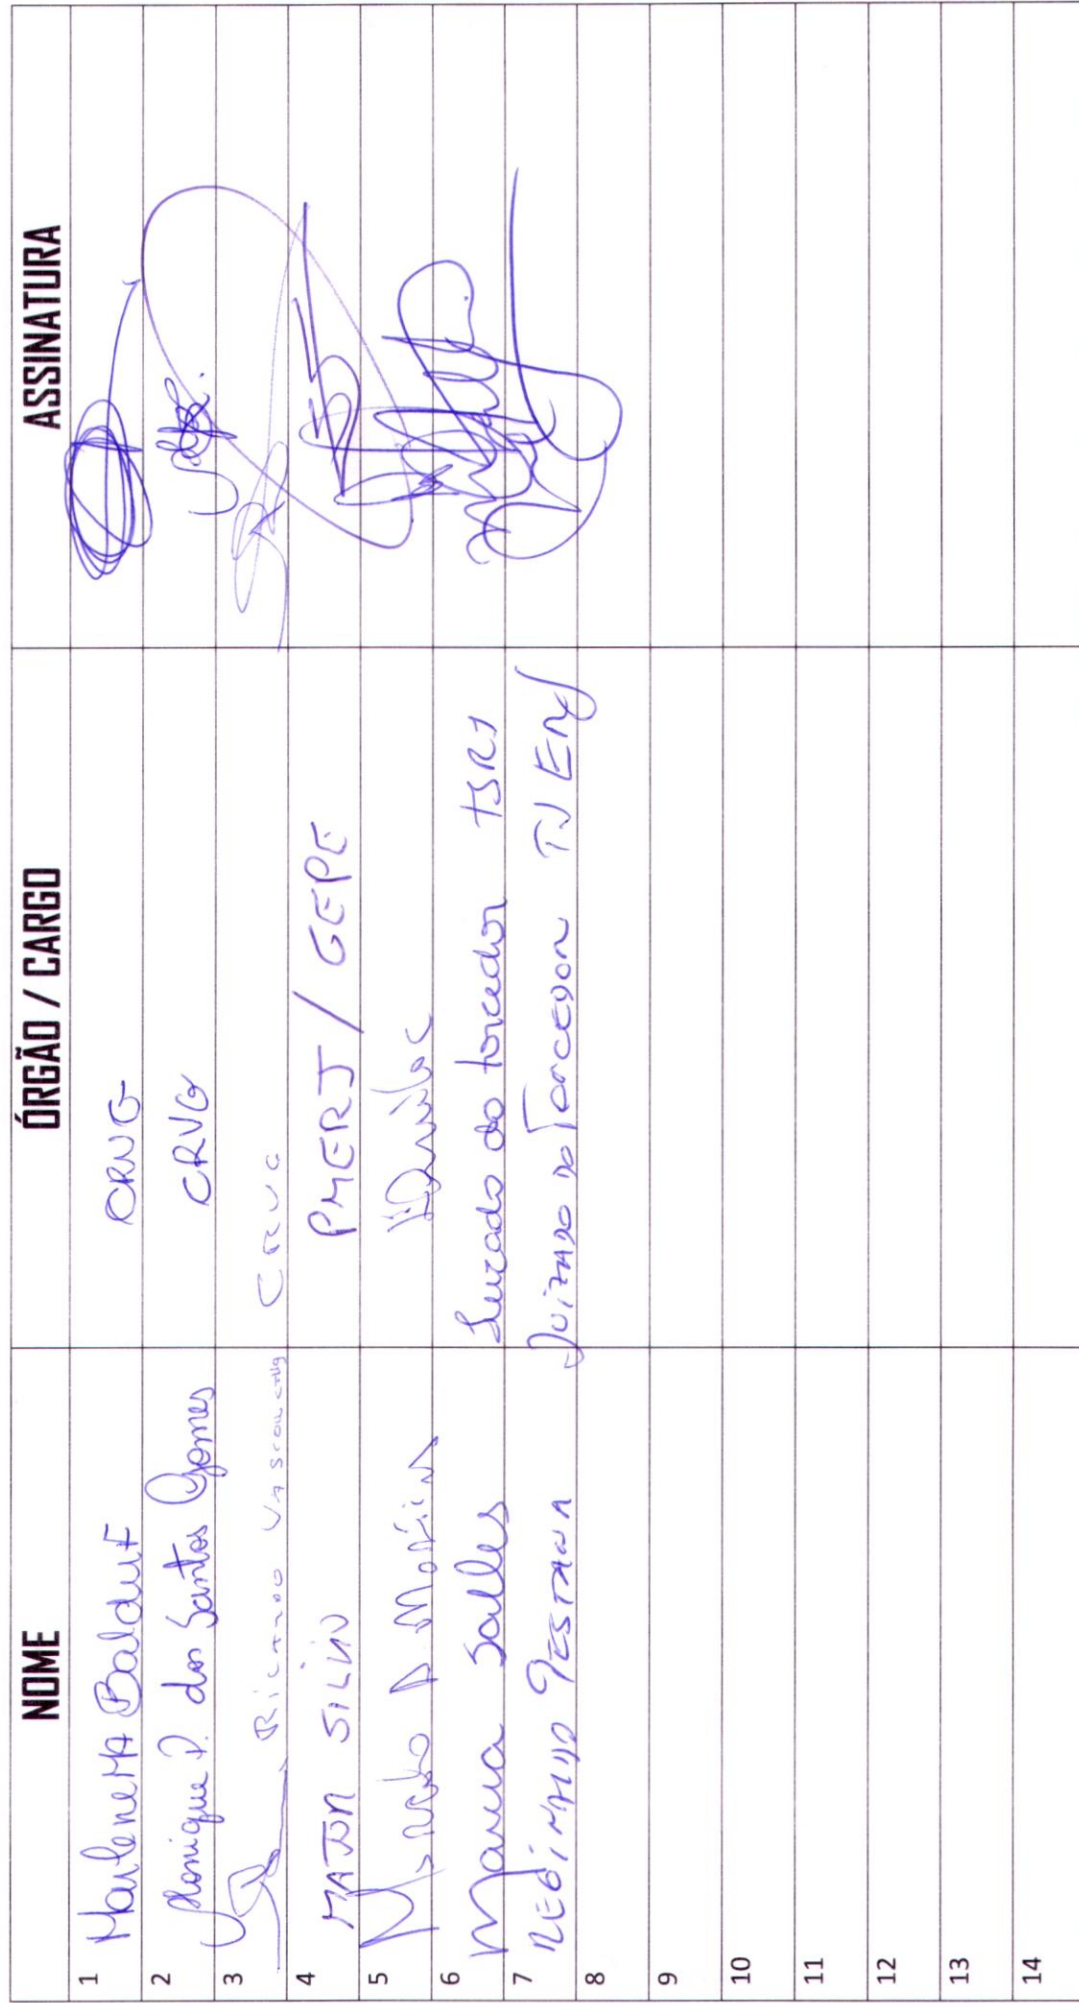 NOME ÓRGÃO / CARGO ASSINATURA
1 Marlene MA Balduf CRVG
2 Monique P. dos Santos Gomes CRVG
3 Ricardo CRVG
4 MAJOR SILVIO PMERJ / GEPE
5
6 Maria Salles Juizado do torcedor TJRJ
7 REGINALDO PESTANA JUIZADO DO TORCEDOR TJ
8
9
10
11
12
13
14